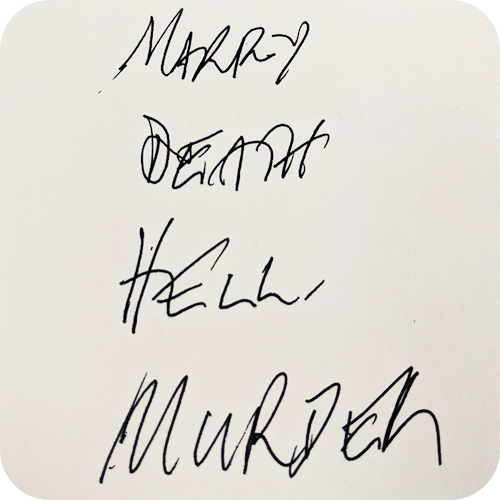 MARRY
DEATH
HELL
MURDER